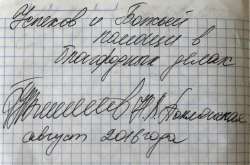 Успехов и Божьей
помощи в
благородных делах
Н. Поклонская
август 2016 года